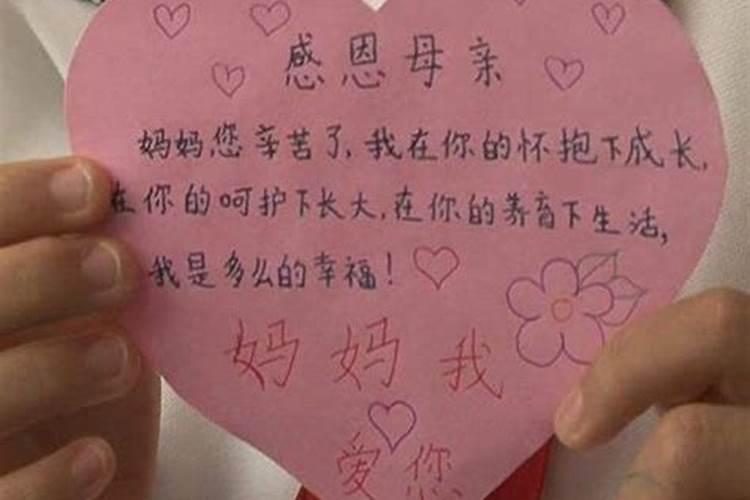 感恩母亲
妈妈您辛苦了,我在你的怀抱下成长,
在你的呵护下长大,在你的养育下生活,
我是多么的幸福!
妈妈我
爱您